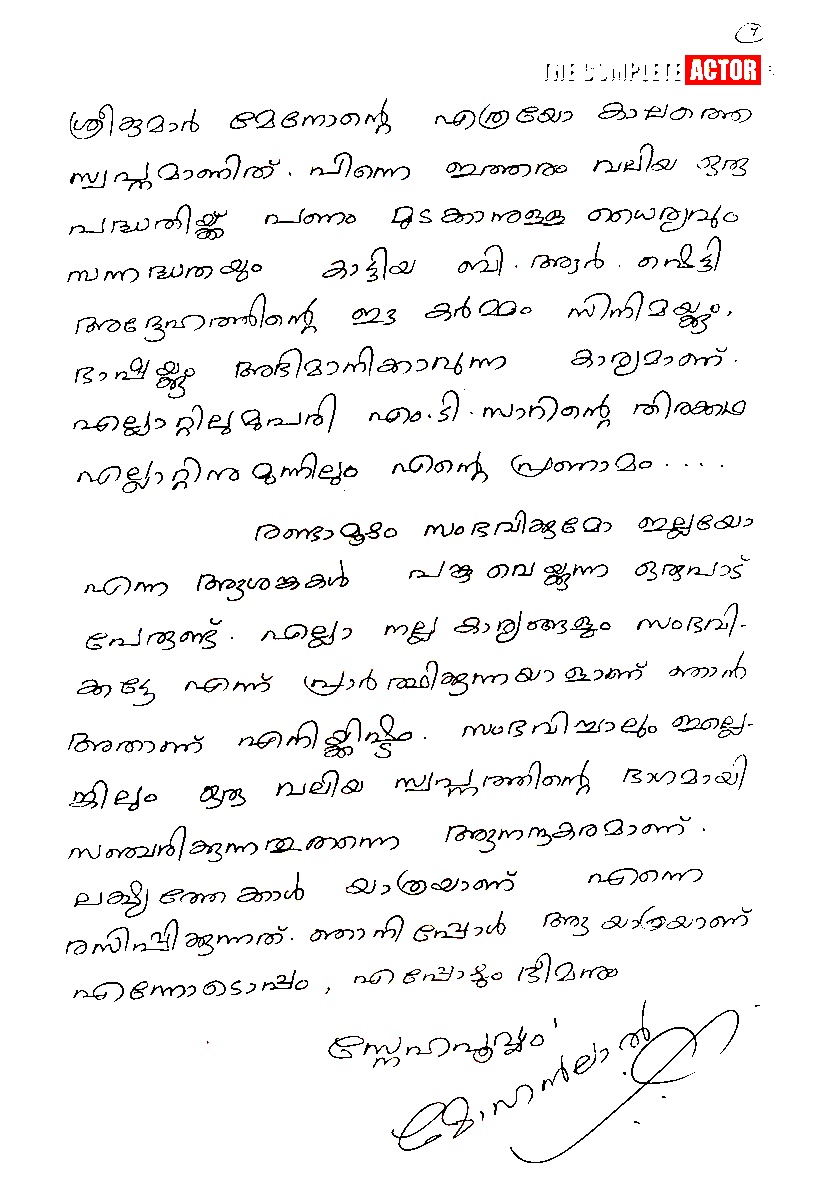 7
THE COMPLETE ACTOR
ശ്രീകുമാർ മേനോന്റെ എത്രയോ കാലത്തെ
സ്വപ്നമാണിത്. പിന്നെ ഇത്തരം വലിയ ഒരു
പദ്ധതിയ്ക്ക് പണം മുടക്കാനുള്ള ധൈര്യവും
സന്നദ്ധതയും കാട്ടിയ ബി. ആർ. ഷെട്ടി
അദ്ദേഹത്തിന്റെ ഈ കർമ്മം സിനിമയ്ക്കും,
ഭാഷയ്ക്കും അഭിമാനിക്കാവുന്ന കാര്യമാണ്.
എല്ലാറ്റിലുമുപരി എം.ടി. സാറിന്റെ തിരക്കഥ
എല്ലാറ്റിനു മുന്നിലും എന്റെ പ്രണാമം....
രണ്ടാമൂഴം സംഭവിക്കുമോ ഇല്ലയോ
എന്ന ആശങ്കകൾ പങ്കുവെയ്ക്കുന്ന ഒരുപാട്
പേരുണ്ട്. എല്ലാ നല്ല കാര്യങ്ങളും സംഭവി-
ക്കട്ടേ എന്ന് പ്രാർത്ഥിക്കുന്നയാളാണ് ഞാൻ
അതാണ് എനിയ്ക്കിഷ്ടം. സംഭവിച്ചാലും ഇല്ലെ-
ങ്കിലും ഒരു വലിയ സ്വപ്നത്തിന്റെ ഭാഗമായി
സഞ്ചരിക്കുന്നതുതന്നെ ആനന്ദകരമാണ്.
ലക്ഷ്യത്തേക്കാൾ യാത്രയാണ് എന്നെ
രസിപ്പിക്കുന്നത്. ഞാനിപ്പോൾ ആ യാത്രയാണ്
എന്നോടൊപ്പം, എപ്പോഴും ഭീമനും
സ്നേഹപൂർവ്വം
മോഹൻലാൽ